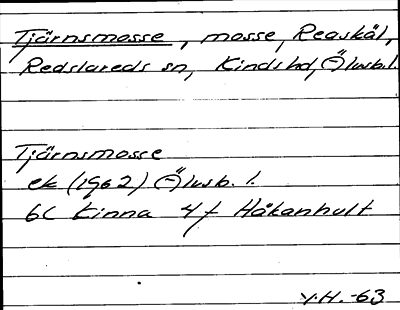 Tjärnsmosse, mosse, Reaskäl,
Redslareds sn, Kinds hd, Älvsb. l.
Tjärnsmosse
ek (1962) Älvsb. l.
6C Kinna 4f Håkanhult
V.H. -63